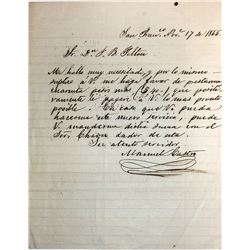 San Franco. Nov. 17 de 1855
Sr. Dn. J. B. Felton
Me hallo muy necesitado, y por lo mismo
suplico á V. me haga favor de prestarme
cuarenta pesos mas ($40-) que
vamente le pagaré á V. lo mas pronto
posible. En caso que V. pueda
hacerme este nuevo servicio, puede
V. mandarme dicha suma con el
Sor. Chavez dador de esta.
Su atento servidor
Manuel Castro